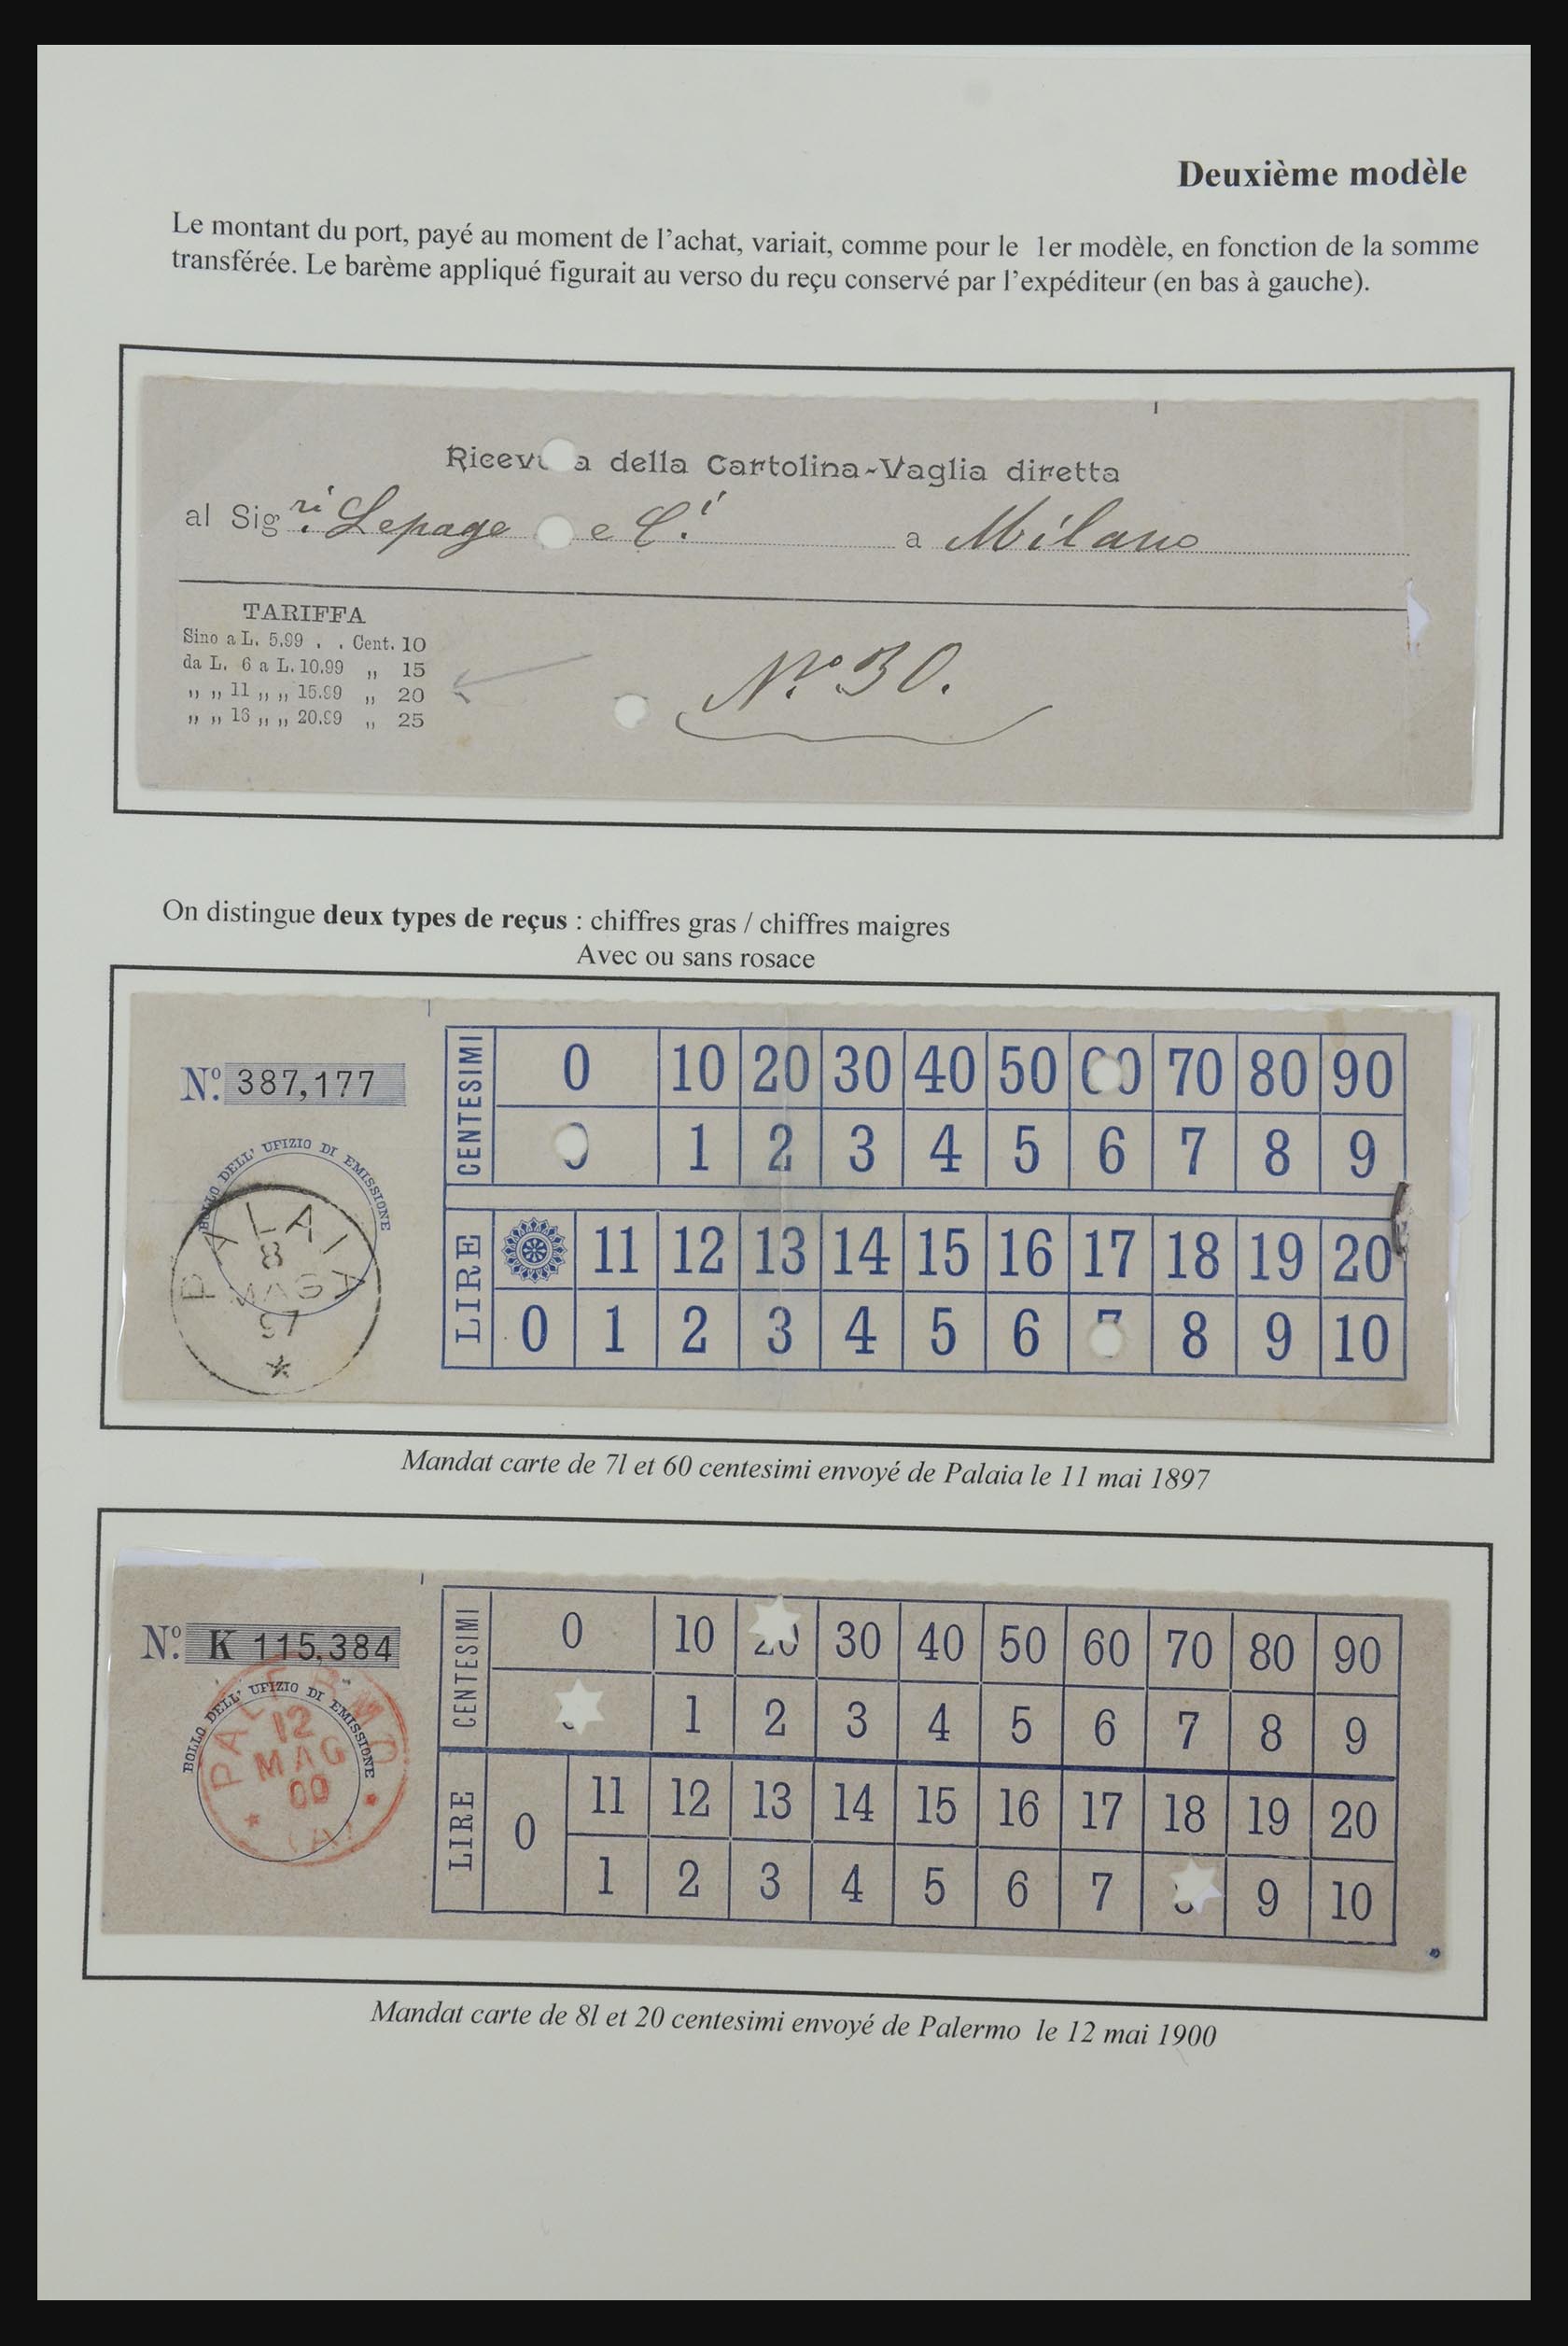 Deuxième modèle
Le montant du port, payé au moment de l'achat, variait, comme pour le 1er modèle, en fonction de la somme
transférée. Le barème appliqué figurait au verso du reçu conservé par l'expéditeur (en bas à gauche).
della Cartolina-Vaglia diretta
al Sig ri. Lepage e C.i a Milano
TARIFFA
Sino a L. 5.99 . . Cent. 10
da L. 6 a L. 10.99 „ 15
„ „ 11 „ „ 15.99 „ 20
„ „ 16 „ „ 20.99 „ 25
N.o 30.
On distingue deux types de reçus : chiffres gras / chiffres maigres
Avec ou sans rosace
No. 387,177
BOLLO DELL' UFIZIO DI EMISSIONE
PALAIA
8
MAG
97
CENTESIMI
0 10 20 30 40 50 70 80 90
1 2 3 4 5 6 7 8 9
LIRE
11 12 13 14 15 16 17 18 19 20
0 1 2 3 4 5 6 7 8 9 10
Mandat carte de 7l et 60 centesimi envoyé de Palaia le 11 mai 1897
No. K 115,384
BOLLO DELL' UFIZIO DI EMISSIONE
PALERMO
12
MAG
00
(A)
CENTESIMI
0 10 20 30 40 50 60 70 80 90
1 2 3 4 5 6 7 8 9
LIRE
0
11 12 13 14 15 16 17 18 19 20
1 2 3 4 5 6 7 9 10
Mandat carte de 8l et 20 centesimi envoyé de Palermo le 12 mai 1900